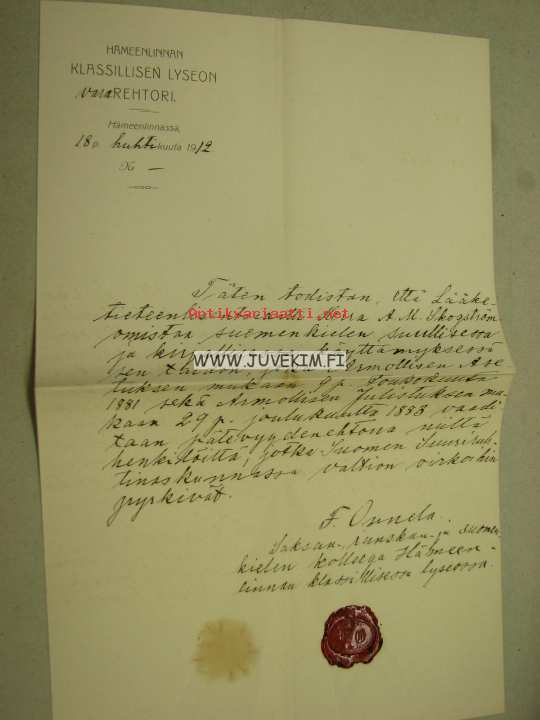 HÄMEENLINNAN
KLASSILLISEN LYSEON
vara REHTORI.
Hämeenlinnassa,
18 p. huhtikuuta 1912
N:o —
Täten todistan, että Lääke-
tieteenkandidaatti Herra A. M. Skogström
omistaa suomenkielen suullisessa
ja kirjallisessa käyttämyksessä
sen taidon, joka Armollisen Ase-
tuksen mukaan 9 p. Toukokuuta
1881 sekä Armollisen Julistuksen mu-
kaan 29 p. joulukuuta 1883 vaadi-
taan pätevyydenehtona niiltä
henkilöiltä, jotka Suomen Suuriruh-
tinaskunnassa valtion virkoihin
pyrkivät.
F. Onnela.
Saksan-, ranskan- ja suomen-
kielen kollega Hämeen-
linnan klassillisessa lyseossa.
Optikvariaatti.com
WWW.JUVEKIM.FI